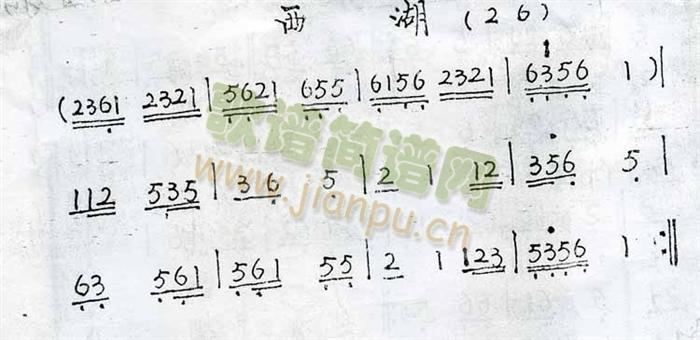 西 湖 (2 6)
(2361 2321 | 5621 655 | 6156 2321 | 6356 1 ) |
112 535 | 36 5 | 2 1 12 | 356 5 |
63 561 | 561 55 | 2 1 123 | 5356 1 :||
歌谱简谱网
www.jianpu.cn